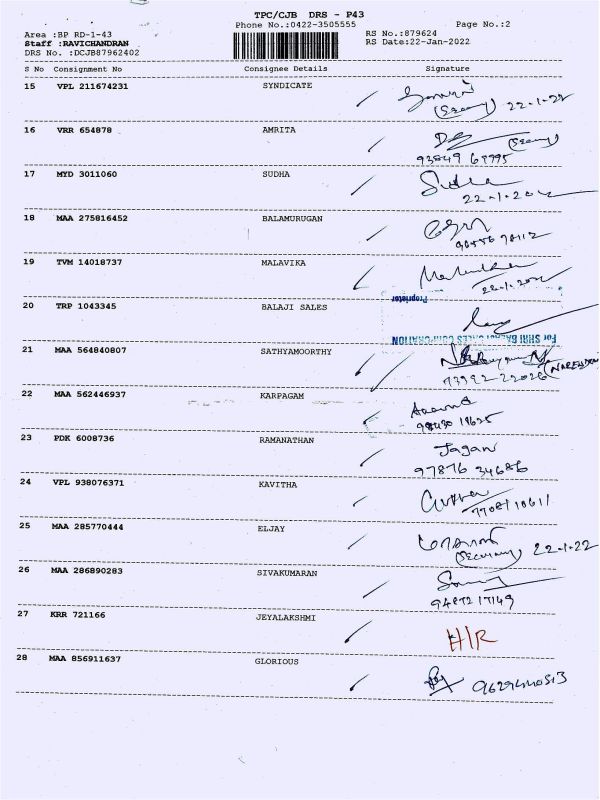 TPC/CJB DRS - P43
Phone No.:0422-3505555
Page No.:2
Area :BP RD-1-43
Staff :RAVICHANDRAN
DRS No. :DCJB87962402
RS No.:879624
RS Date:22-Jan-2022
S No Consignment No Consignee Details Signature
15 VPL 211674231 SYNDICATE
(Secury) 22-1-22
16 VRR 654878 AMRITA
(Secury)
17 MYD 3011060 SUDHA Sudha
18 MAA 275816452 BALAMURUGAN
19 TVM 14018737 MALAVIKA
Proprietor
20 TRP 1043345 BALAJI SALES
For SHRI BALAJI SALES CORPORATION
21 MAA 564840807 SATHYAMOORTHY
(NARENDRN)
22 MAA 562446937 KARPAGAM
23 PDK 6008736 RAMANATHAN Jagan
97876 34686
24 VPL 938076371 KAVITHA
25 MAA 285770444 ELJAY
(Secuury) 22-1-22
26 MAA 286890283 SIVAKUMARAN
94872 17149
27 KRR 721166 JEYALAKSHMI H/R
28 MAA 856911637 GLORIOUS